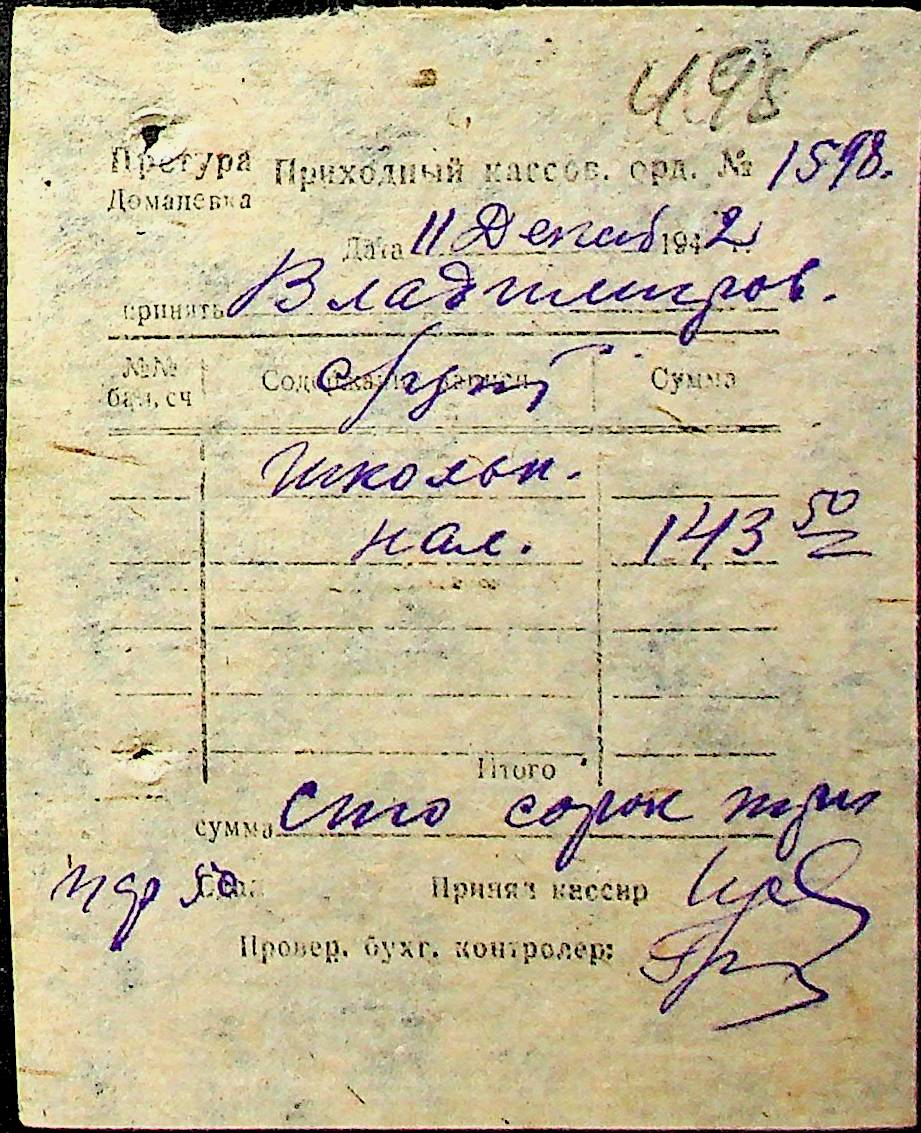 495
Претура Приходный кассов. орд. № 1598.
Домановка
Дата 11 Декаб 1942 г.
принять Владимиров.
№№ бал. сч Содержание записи Сумма
Школьн.
нал. 143 50
Итого
сумма Сто сорок три
мар 50 Принял кассир
Провер. бухг. контролер: